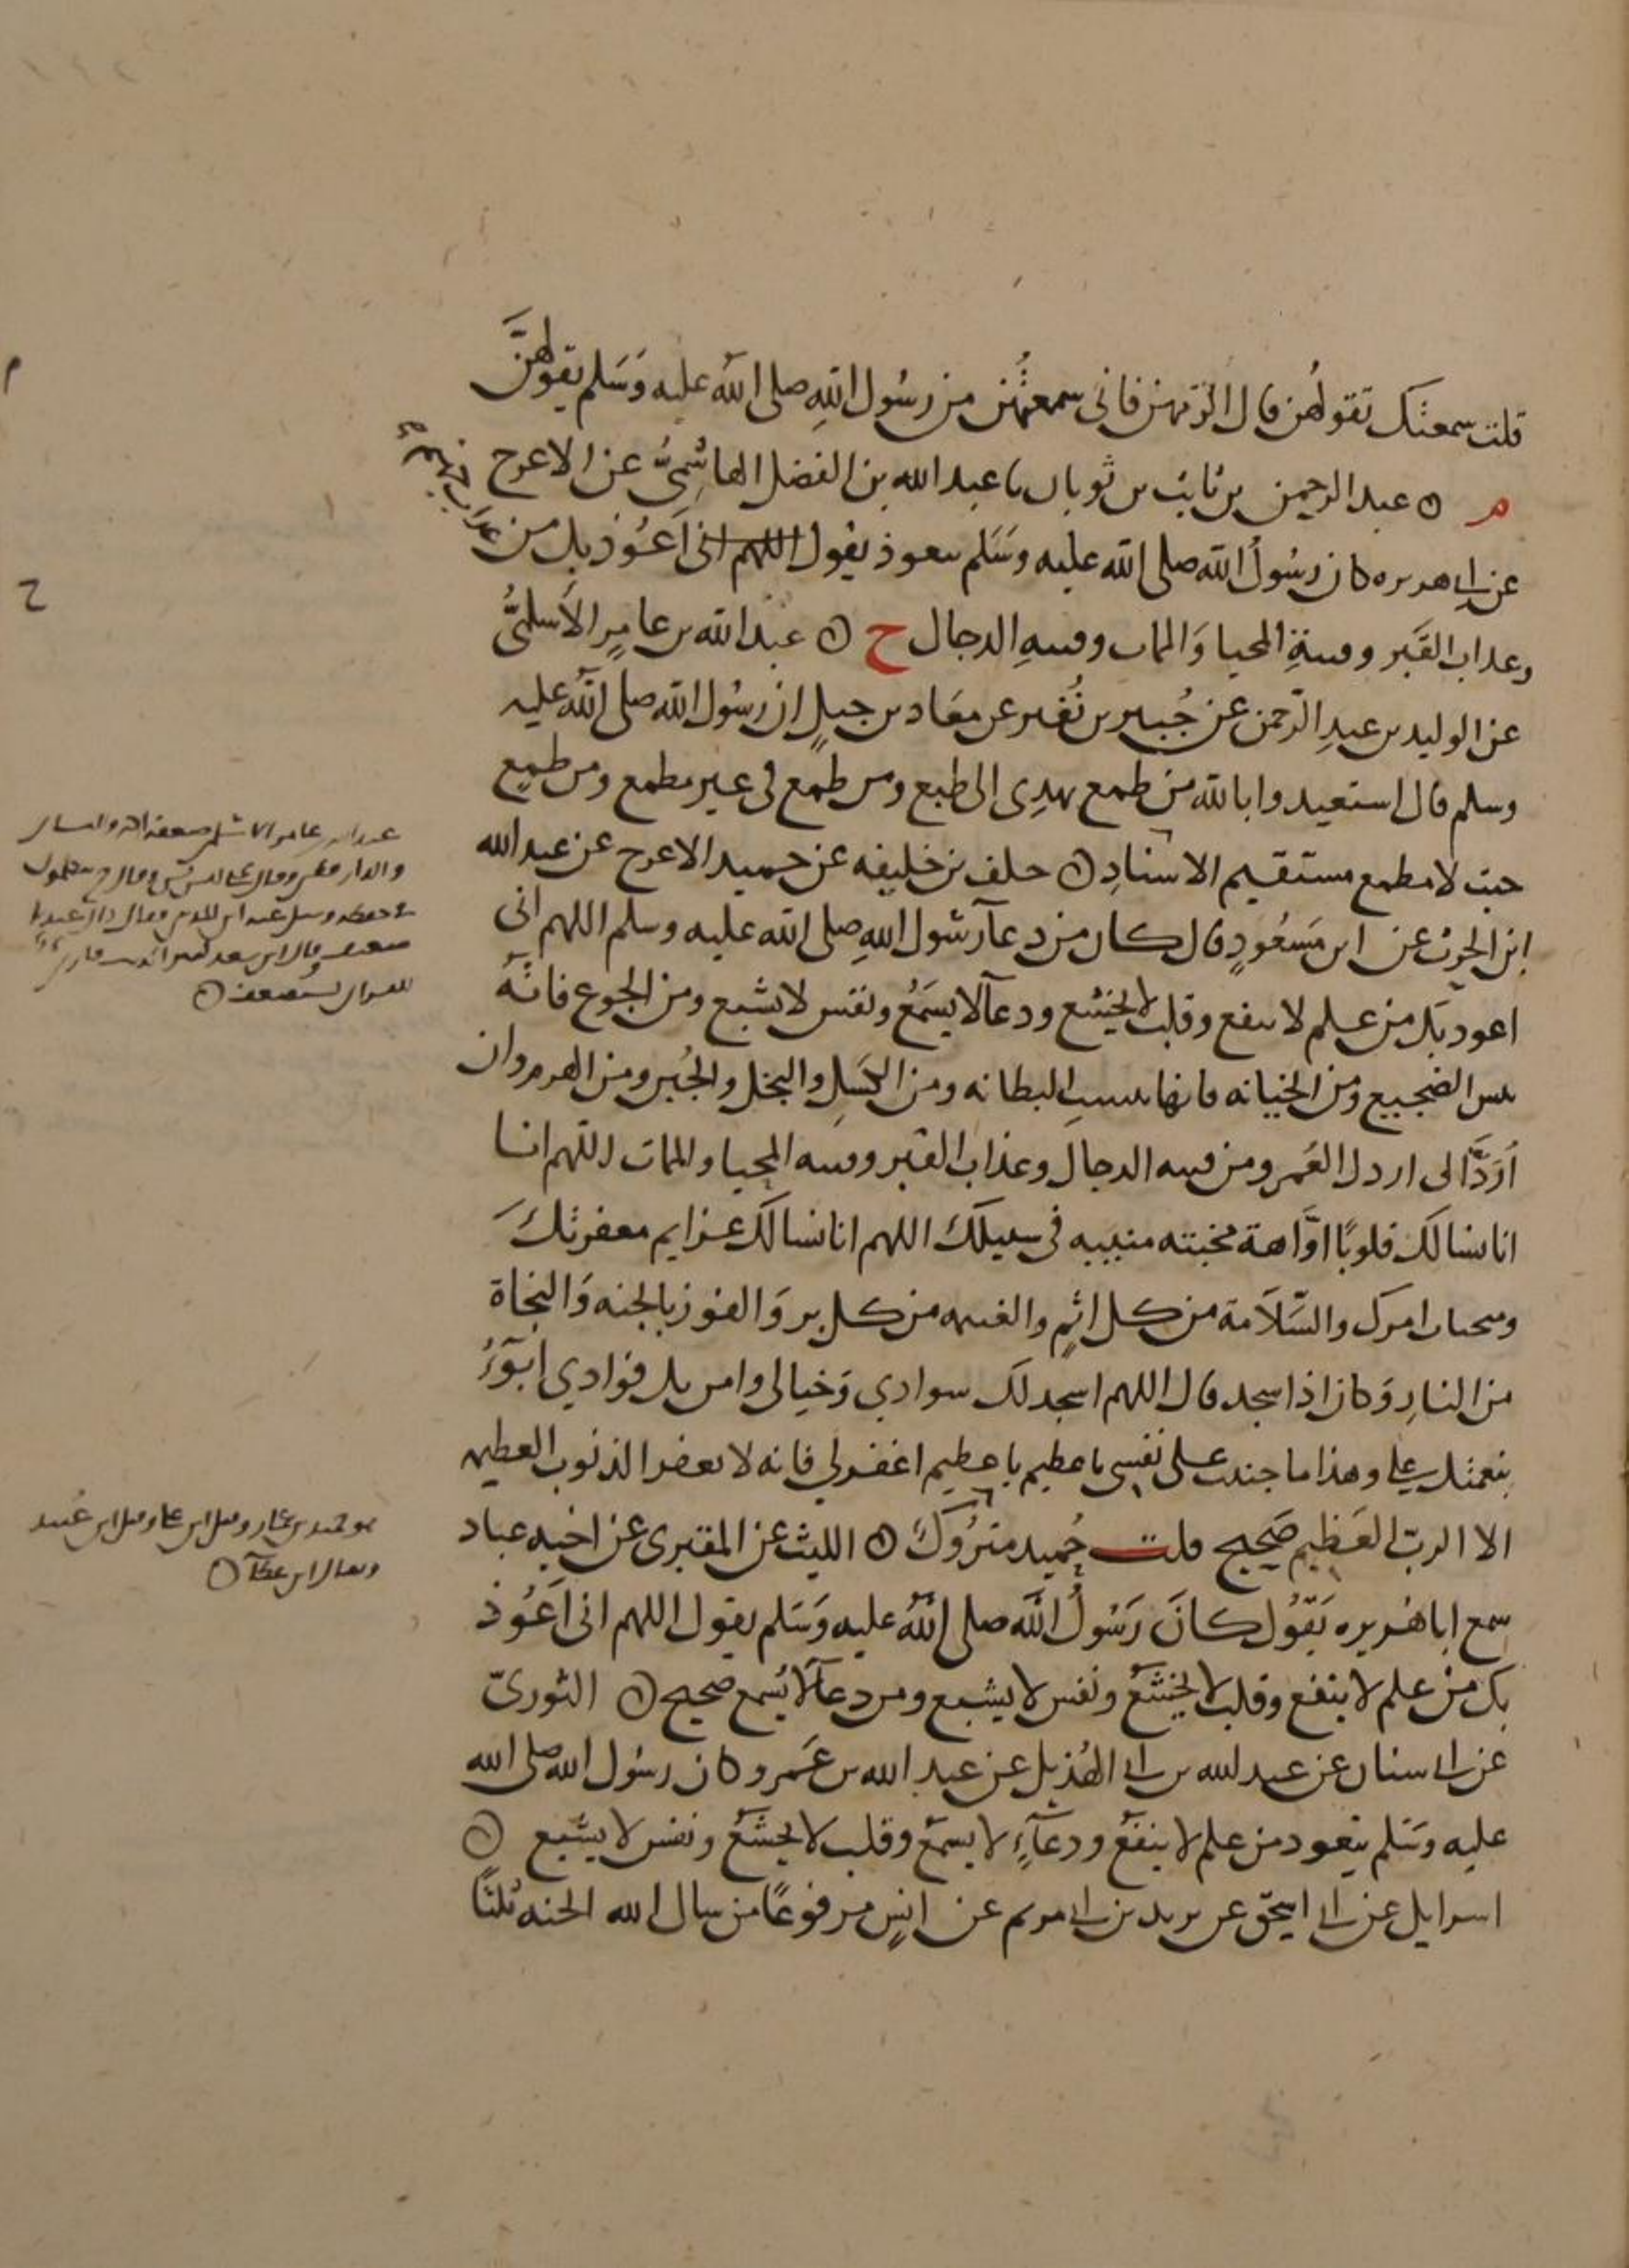 قلت سمعتك تقولهن قال الزمهن فاني سمعتهن من رسول الله صلى الله عليه وسلم يقولهن
م ○ عبد الرحمن بن ثابت بن ثوبان نا عبد الله بن الفضل الهاشمي عن الاعرج
عن ابي هريره كان رسول الله صلى الله عليه وسلم يتعوذ يقول اللهم اني اعوذ بك من عذاب جهنم
وعذاب القبر وفتنة المحيا والممات وفتنه الدجال ح ○ عبد الله بن عامر الاسلمي
عن الوليد بن عبد الرحمن عن جبير بن نفير عن معاذ بن جبل ان رسول الله صلى الله عليه
وسلم قال استعيذوا بالله من طمع يهدي الى طبع ومن طمع في غير مطمع ومن طمع
حيث لا مطمع مستقيم الاسناد ○ خلف بن خليفه عن حميد الاعرج عن عبد الله
ابن الحرث عن ابن مسعود قال كان من دعآ رسول الله صلى الله عليه وسلم اللهم اني
اعوذ بك من علم لا ينفع وقلب لا يخشع ودعآ لا يسمع ونفس لا تشبع ومن الجوع فانه
بئس الضجيع ومن الخيانه فانها بئست البطانه ومن الكسل والبخل والجبن ومن الهرم وان
أرد الى ارذل العمر ومن فتنه الدجال وعذاب القبر وفتنه المحيا والممات اللهم انا
انا نسالك قلوبا اواهة مخبته منيبه في سبيلك اللهم انا نسالك عزايم مغفرتك
ومنجيات امرك والسلامة من كل اثم والغنيمه من كل بر والفوز بالجنه والنجاة
من النار وكان اذا سجد قال اللهم اسجد لك سوادي وخيالي وامن بك فوادي ابوء
بنعمتك علي وهذا ما جنيت على نفسي يا عظيم يا عظيم اغفر لي فانه لا يغفر الذنوب العظيمه
الا الرب العظيم صحيح قلت حميد متروك ○ الليث عن المقبري عن اخيه عباد
سمع ابا هريره يقول كان رسول الله صلى الله عليه وسلم يقول اللهم اني اعوذ
بك من علم لا ينفع وقلب لا يخشع ونفس لا يشبع ومن دعآ لا يسمع صحيح ○ الثوري
عن ابي سنان عن عبد الله بن ابي الهذيل عن عبد الله بن عمرو كان رسول الله صلى الله
عليه وسلم يتعوذ من علم لا ينفع ودعآء لا يسمع وقلب لا يخشع ونفس لا يشبع ○
اسرايل عن ابي اسحق عن بريد بن ابي مريم عن انس مرفوعا من سال الله الجنه ثلثا
م
ح
عبد الله بن عامر الاسلمي ضعفه احمد والنسائي
هو حميد بن عطاء وقيل ابن علي وقيل ابن عبيد